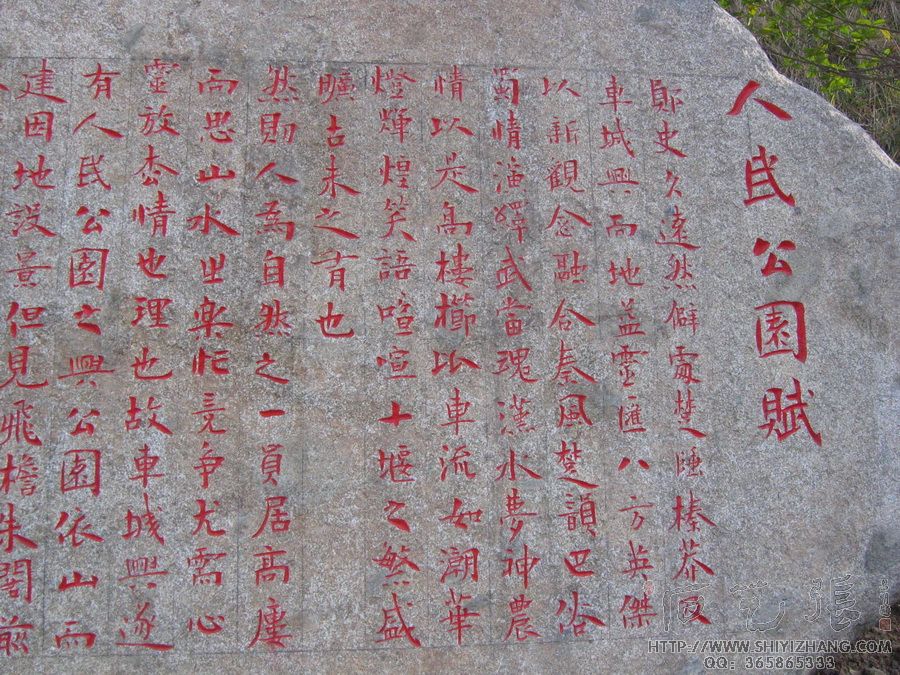 人民公園賦
鄖史久遠然僻處楚陲榛莽
車城興而地益靈匯八方英傑
以新觀念融合秦風楚韻巴俗
蜀情演繹武當瑰漢水夢神農
情以是高樓櫛比車流如潮華
燈輝煌笑語喧喧十堰之繁盛
曠古未之有也
然則人為自然之一員居高廔
而思山水㞢楽忙竞争尤需心
靈放枩情也理也故車城興遂
有人民公園之興公園依山而
建因地設景但見飛檐朱閣
HTTP://WWW.SHIYIZHANG.COM
QQ: 365865333